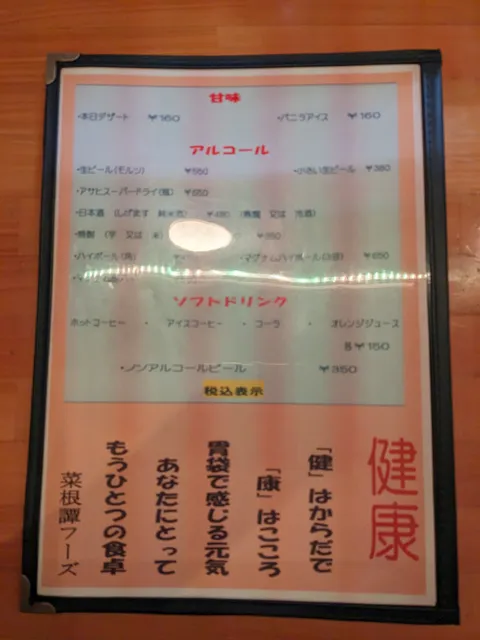 甘味
・本日デザート ￥160 ・バニラアイス ￥160
アルコール
・生ビール(モルツ) ￥550 ・小さい生ビール ￥380
・アサヒスーパードライ(瓶) ￥650
・日本酒 ￥490 (熱燗 又は 冷酒)
・焼酎 (芋 又は 麦) ￥350
・ハイボール(角) ・マグナムハイボール ￥650
ソフトドリンク
ホットコーヒー ・ アイスコーヒー ・ コーラ ・ オレンジジュース
各￥150
・ノンアルコールビール ￥350
税込表示
健康
「健」はからだで
「康」はこころ
胃袋で感じる元気
あなたにとって
もうひとつの食卓
菜根譚フーズ